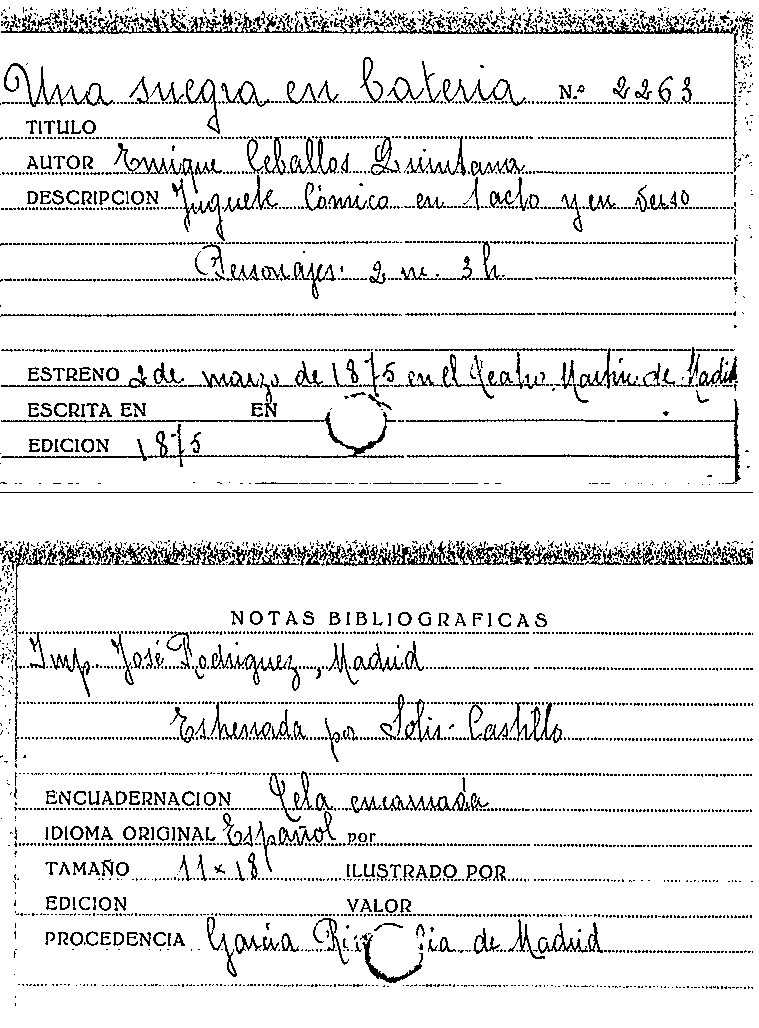 Una suegra en bateria N.º 2263
TITULO
AUTOR Enrique Ceballos Quintana
DESCRIPCION Juguete Cómico en 1 acto y en verso
Personajes: 2 m. 3 h.
ESTRENO 2 de marzo de 1875 en el Teatro Martin de Madrid
ESCRITA EN EN
EDICION 1875
NOTAS BIBLIOGRAFICAS
Imp. José Rodriguez, Madrid
Estrenada por Solis-Castillo
ENCUADERNACION Tela encarnada
IDIOMA ORIGINAL Español por
TAMAÑO 11 x 18 ILUSTRADO POR
EDICION VALOR
PROCEDENCIA García de Madrid